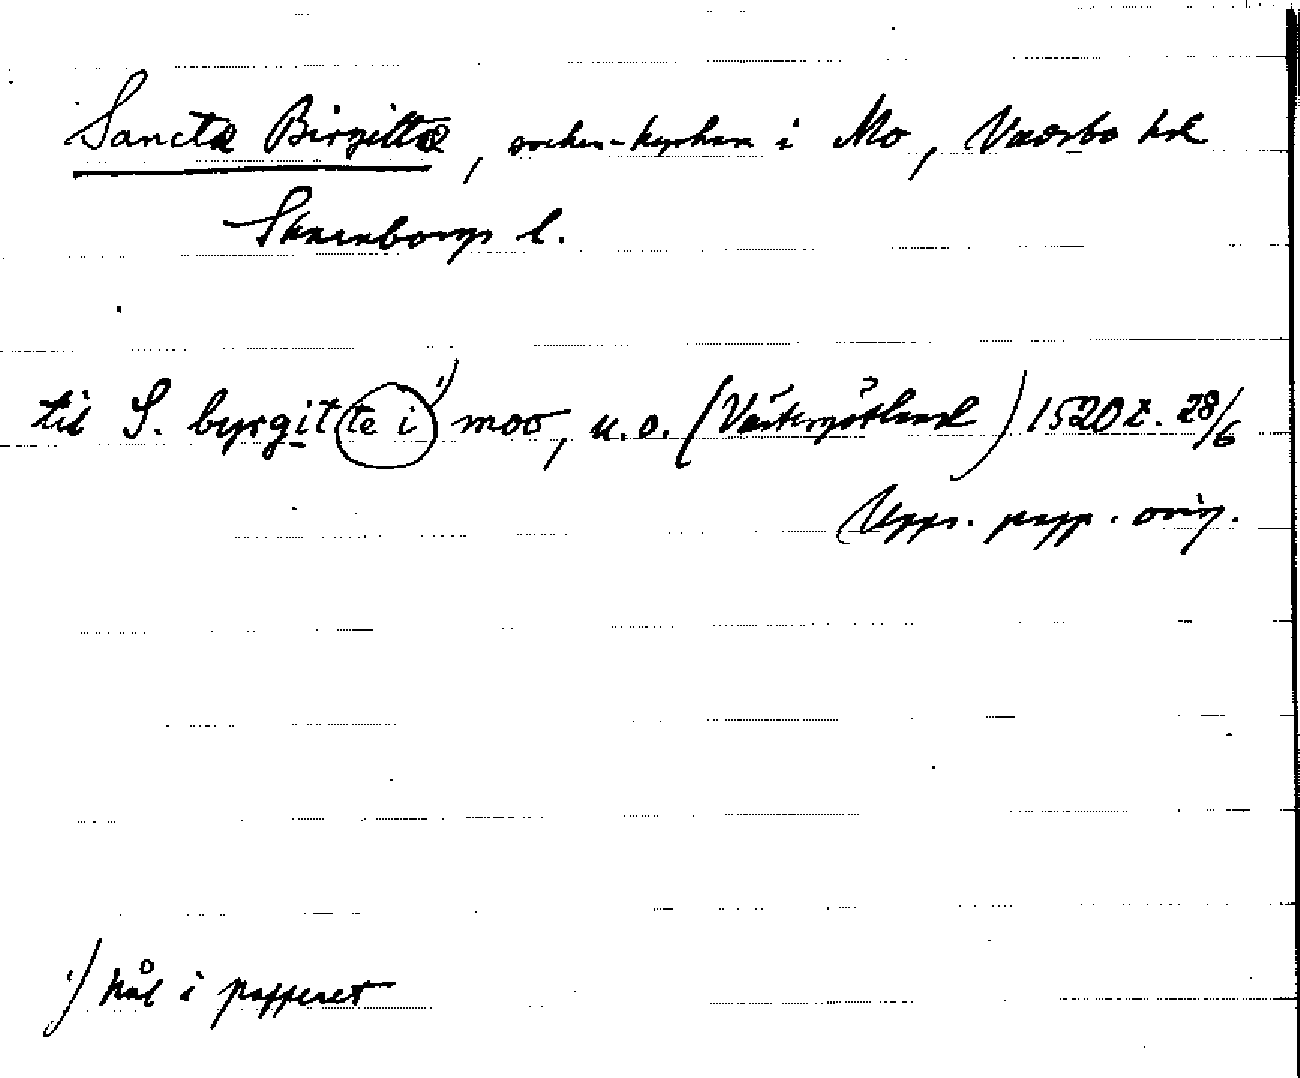 Sanctæ Birgittæ, socken-kyrkan i Mo, Vadsbo hd
Skaraborgs l.
til S. byrgitte i ¹) moo, u.o. (Västergötland) 1520 t. 28/6
Upps. papp. orig.
¹) hål i papperet